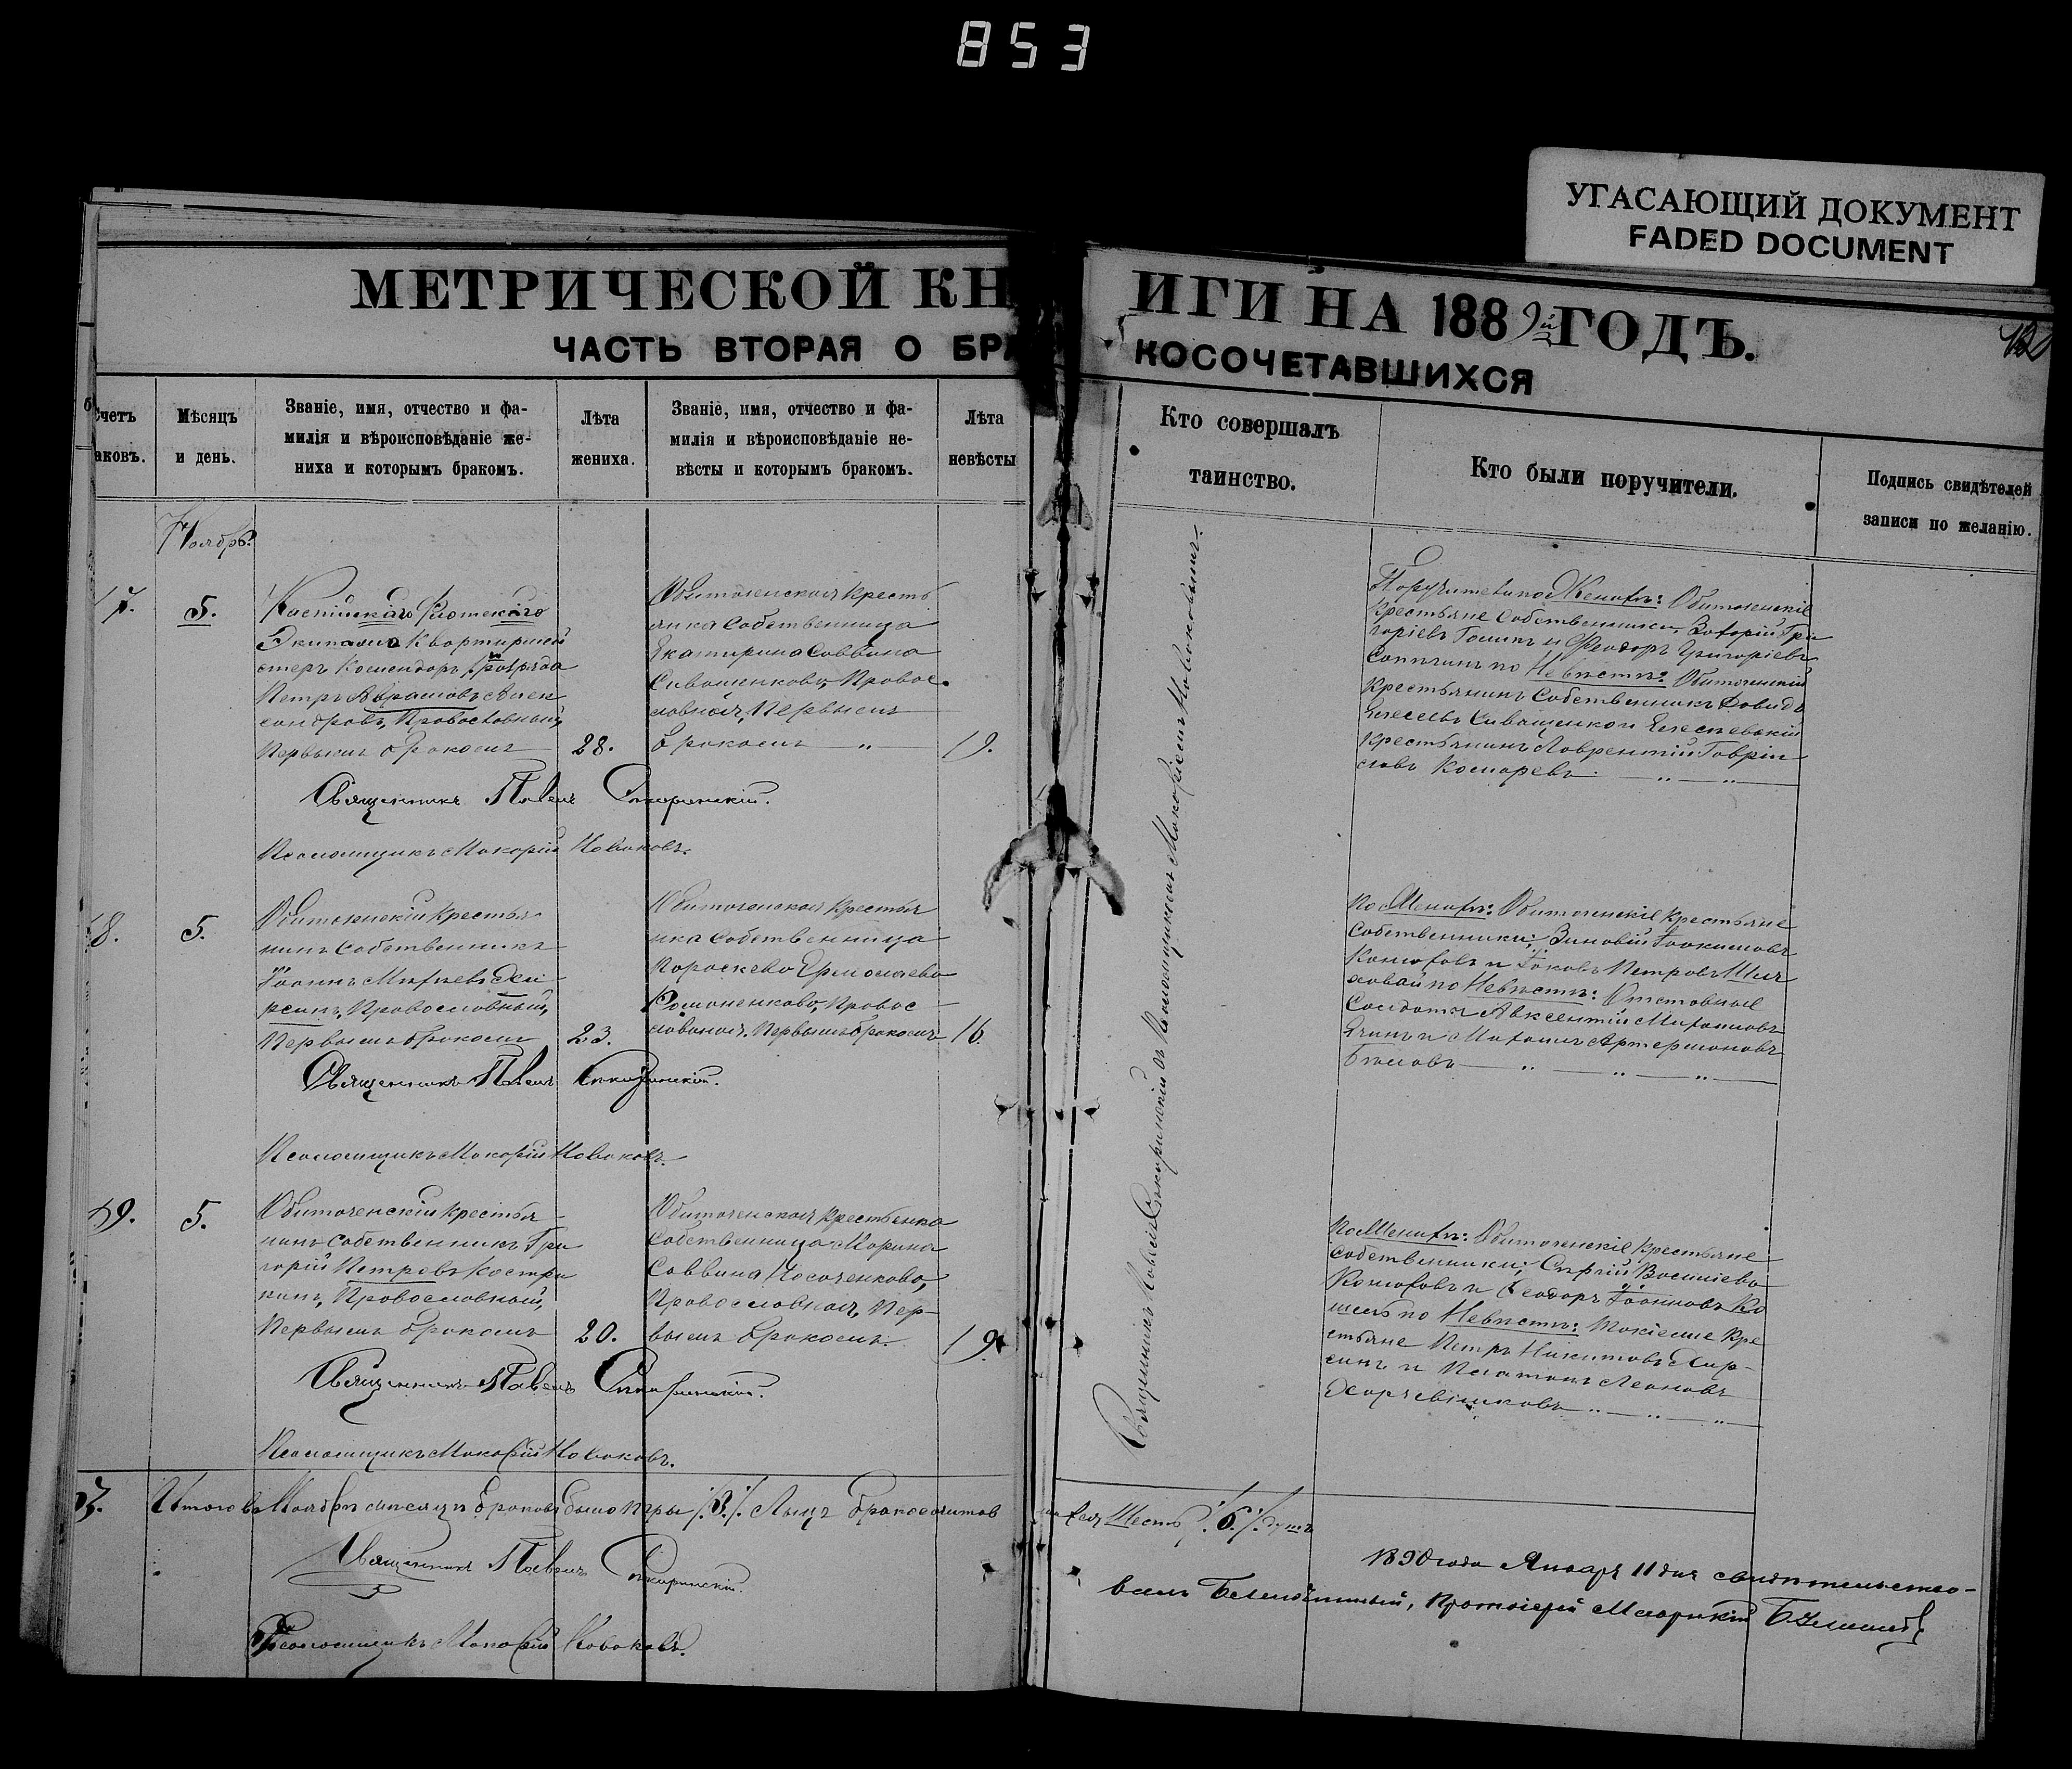 853
УГАСАЮЩИЙ ДОКУМЕНТ
FADED DOCUMENT
МЕТРИЧЕСКОЙ КНИГИ НА 1889й ГОДЪ.
ЧАСТЬ ВТОРАЯ О БРАКОСОЧЕТАВШИХСЯ
12
Счетъ
аковъ.
Мѣсяцъ
и день.
Званіе, имя, отчество и фа-
милія и вѣроисповѣданіе же-
ниха и которымъ бракомъ.
Лѣта
жениха.
Званіе, имя, отчество и фа-
милія и вѣроисповѣданіе не-
вѣсты и которымъ бракомъ.
Лѣта
невѣсты
Кто совершалъ
таинство.
Кто были поручители.
Подпись свидѣтелей
записи по желанію.
Ноябрь.
17.
5.
Каспійскаго Флотскаго
Экипажа Квартирмей
стеръ Комендоръ,
Петръ Абрамовъ Алек
сандровъ, Православный,
Первымъ бракомъ
28.
Обиточенская кресть
янка Собственница
Екатерина Саввина
Сиващенкова, Правос-
лавная, Первымъ
бракомъ
19.
Поручители по Женихѣ: Обиточенскіе
Крестьяне Собственники, Захарій Гри
горіевъ и Феодоръ Григоріевъ
по Невѣстѣ: Обиточенскій
Крестьянинъ Собственникъ Давидъ
Сиващенко и
Крестьянинъ Лаврентій Гаврiи
ловъ Комаревъ
Священникъ Павелъ
Псаломщикъ Макарій Новаковъ.
18.
5.
Обиточенскій Крестья
нинъ Собственникъ
Іоаннъ
Православный,
Первымъ бракомъ
23.
Обиточенская Крестья
нка Собственница
Параскева Ермолаева
Романенкова, Правос
лавная, Первымъ бракомъ
16.
По Женихѣ: Обиточенскіе Крестьяне
Собственники; Зиновій Іоакимовъ
Конюховъ и Іаковъ Петровъ
по Невѣстѣ: Отставные
Солдаты Авксентій
и Артермоновъ
Священникъ Павелъ
Псаломщикъ Макарій Новаковъ.
19.
5.
Обиточенскій Крестья
нинъ Собственникъ Гри
горій Петровъ Костри
кинъ, Православный,
Первымъ бракомъ
20.
Обиточенская Крестьянка
Собственница Марина
Саввина Носаченкова,
Православная, Пер-
вымъ бракомъ.
19.
По Женихѣ: Обиточенскіе Крестьяне
Собственники; Сергій Василіевъ
Конюховъ и Феодоръ Іоанновъ Ко
по Невѣстѣ: Такіеже Кре
стьяне Петръ Никитовъ
и Платонъ Леоновъ
Священникъ Павелъ
Псаломщикъ Макарій Новаковъ.
Священникъ Павелъ съ Псаломщикомъ Макаріемъ Новаковымъ.
3. Итого въ Ноябрѣ мѣсяцѣ браковъ было три /.3./. Лицъ бракосочитав
Шесть /.6./. душъ
Священникъ Павелъ
Псаломщикъ Макарій Новаковъ.
1890 года Января 11 дня свидѣтельство-
валъ Благочинный, Протоіерей